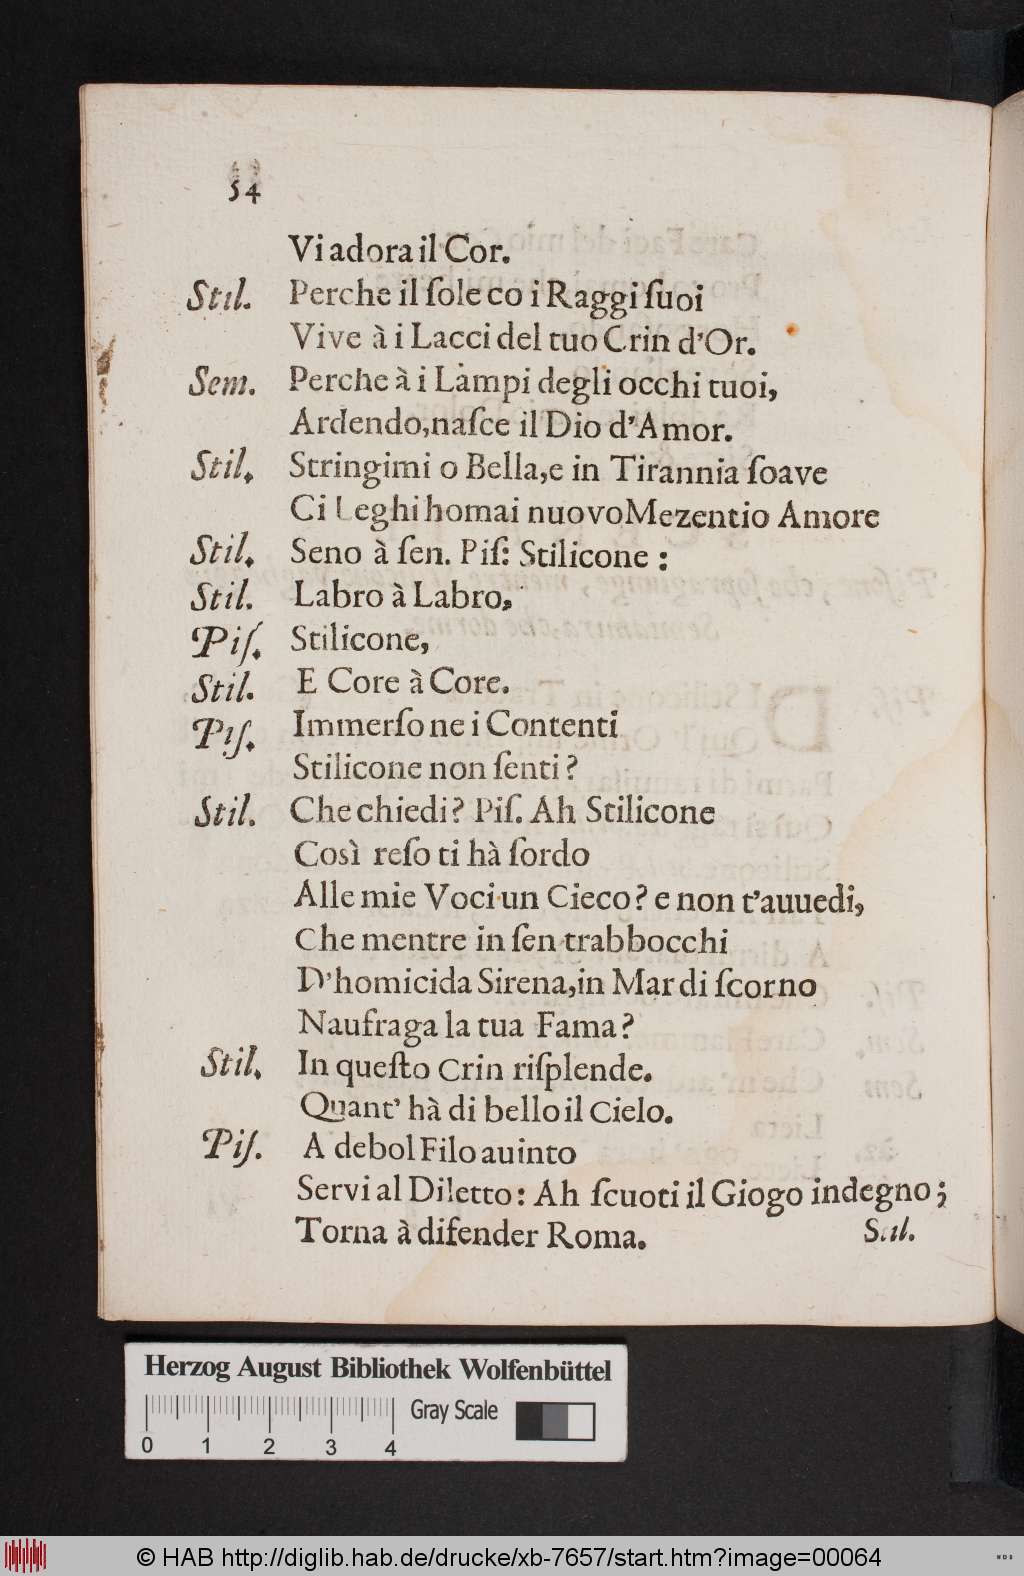 54
Vi adora il Cor.
Stil. Perche il ſole co i Raggi ſuoi
Vive à i Lacci del tuo Crin d'Or.
Sem. Perche à i Lampi degli occhi tuoi,
Ardendo, naſce il Dio d'Amor.
Stil. Stringimi o Bella, e in Tirannia ſoave
Ci Leghi homai nuovo Mezentio Amore
Stil. Seno à ſen. Piſ: Stilicone :
Stil. Labro à Labro,
Piſ. Stilicone,
Stil. E Core à Core.
Piſ. Immerſo ne i Contenti
Stilicone non ſenti?
Stil. Che chiedi? Piſ. Ah Stilicone
Così reſo ti hà ſordo
Alle mie Voci un Cieco? e non t'auuedi,
Che mentre in ſen trabbocchi
D'homicida Sirena, in Mar di ſcorno
Naufraga la tua Fama?
Stil. In queſto Crin riſplende.
Quant' hà di bello il Cielo.
Piſ. A debol Filo auinto
Servi al Diletto: Ah ſcuoti il Giogo indegno;
Torna à difender Roma.
Stil.
Herzog August Bibliothek Wolfenbüttel
Gray Scale
0 1 2 3 4
© HAB http://diglib.hab.de/drucke/xb-7657/start.htm?image=00064